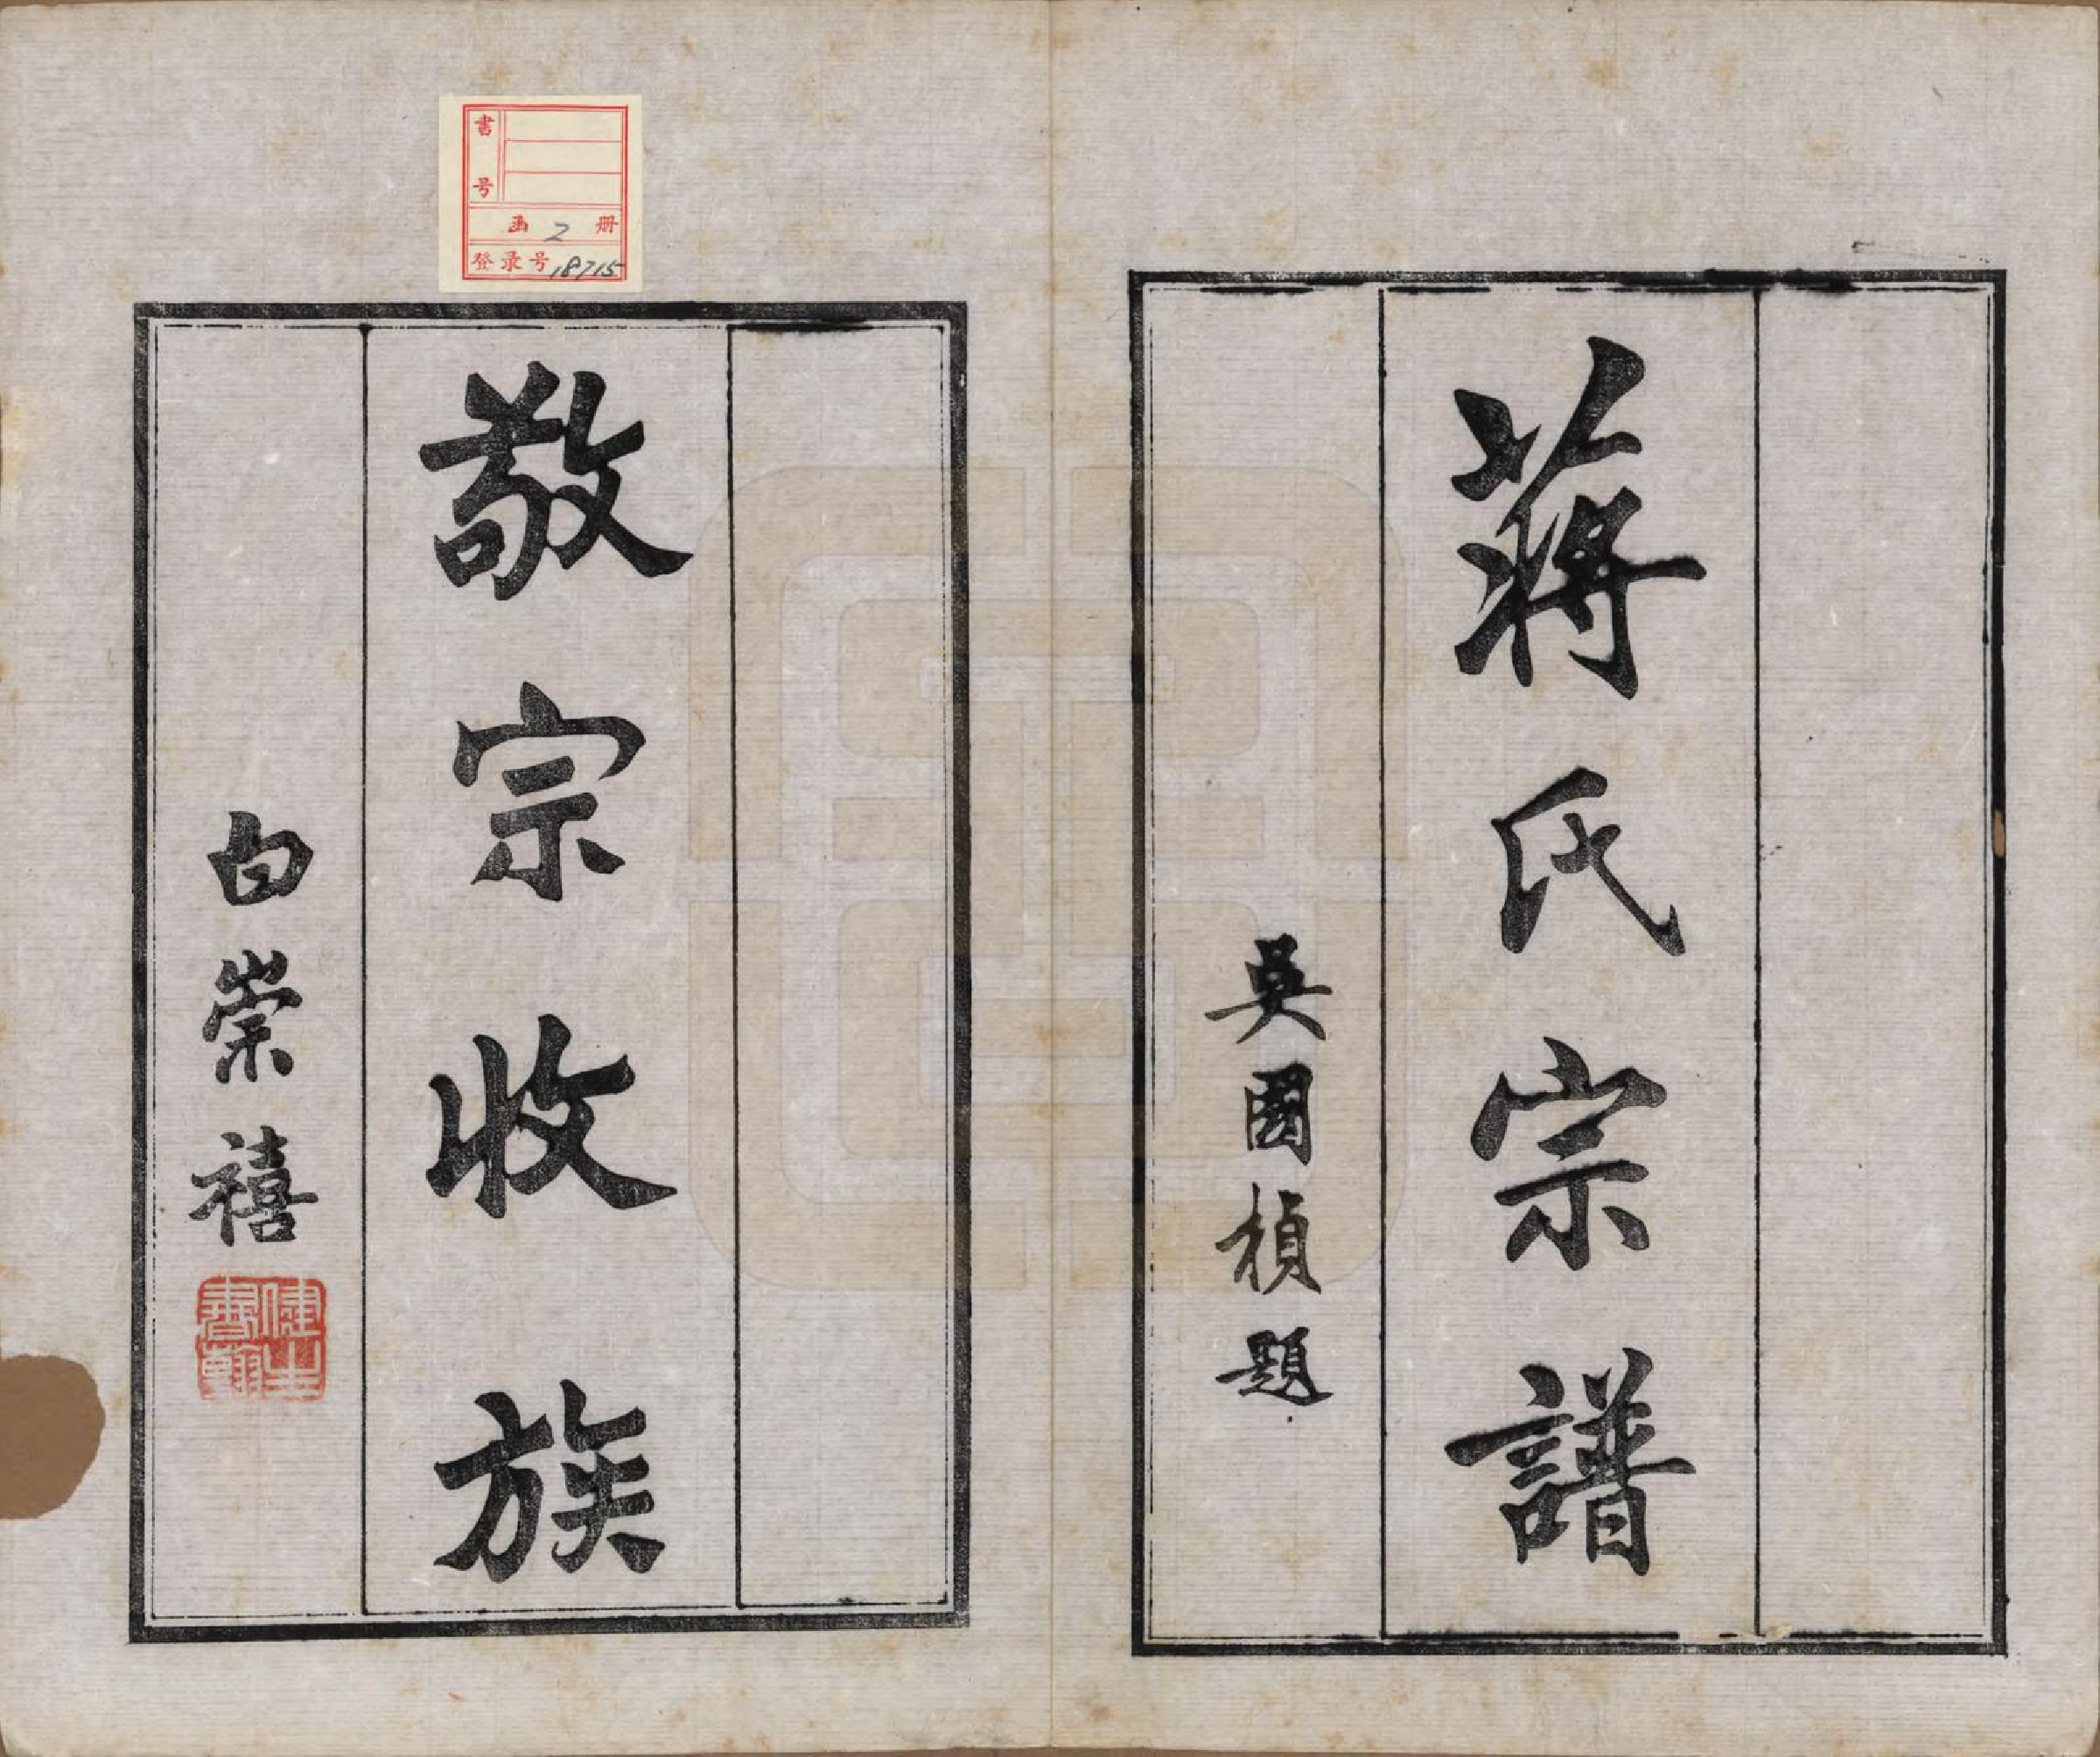 蔣氏宗譜
吳國楨題
敬宗收族
白崇禧
健生書翰
書号
函 2 册
登录号 18715